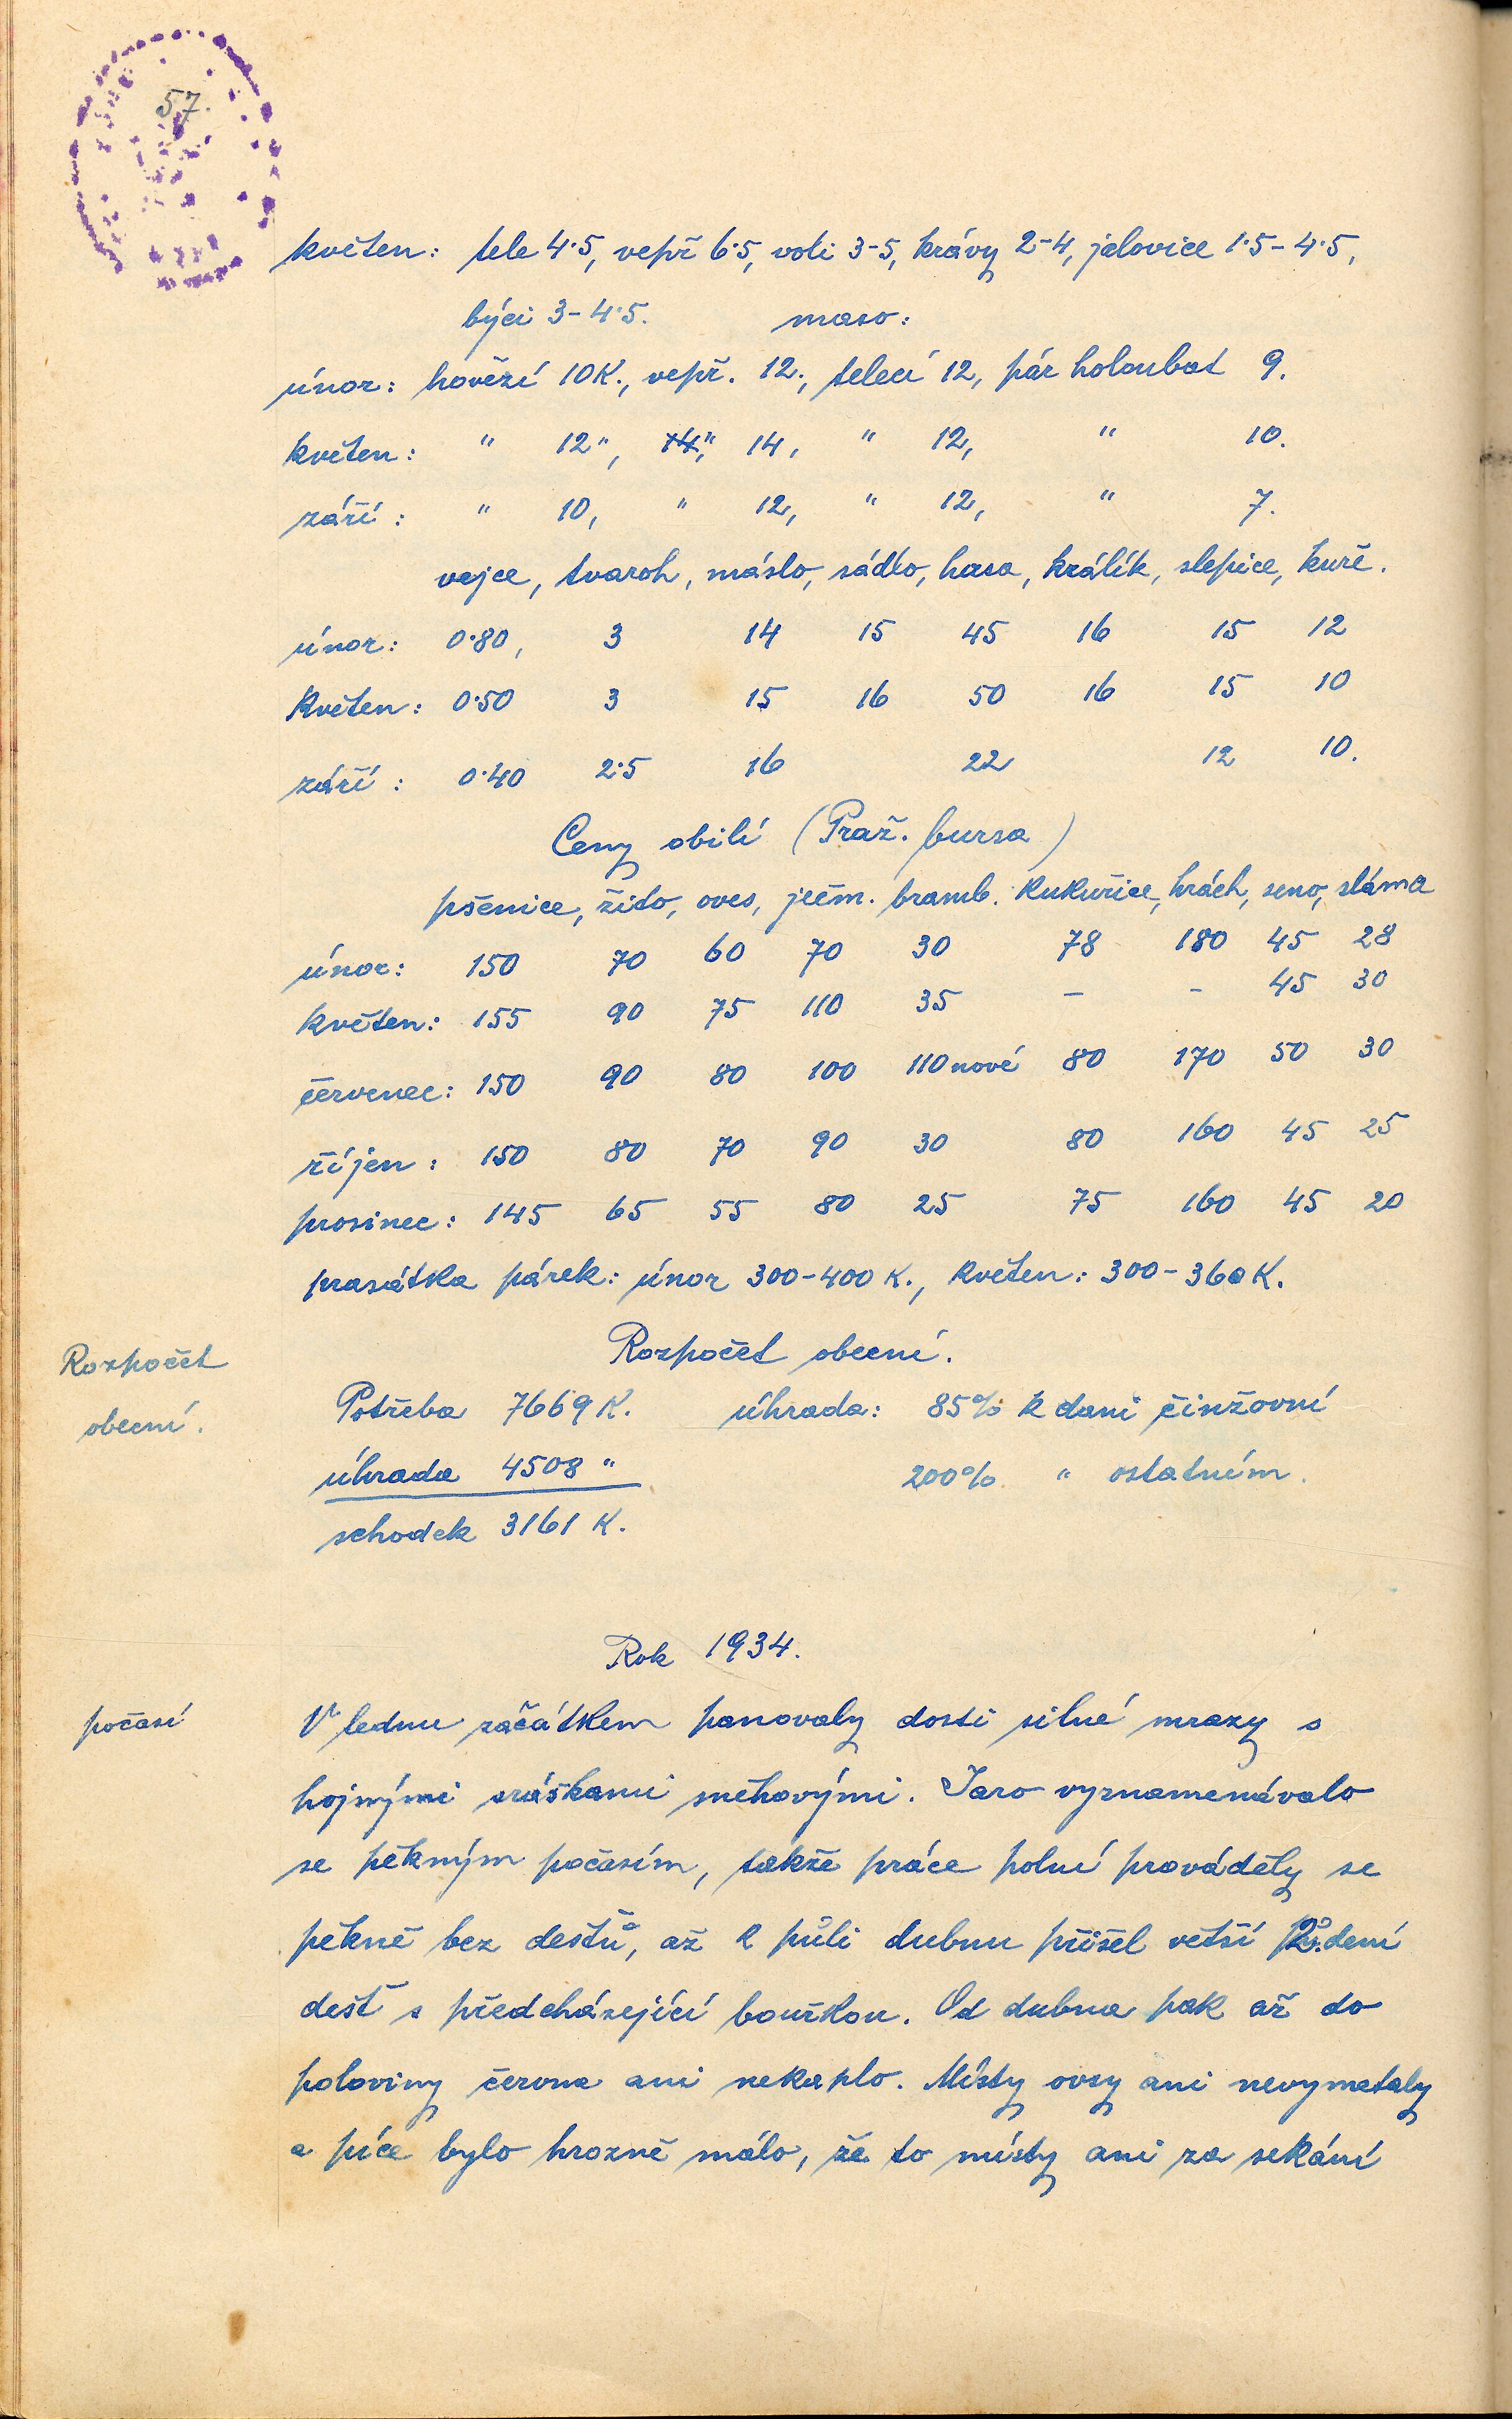 57.
květen: tele 4·5, vepř 6·5, voli 3-5, krávy 2-4, jalovice 1·5-4·5,
býci 3-4·5. maso:
únor: hovězí 10K., vepř. 12., telecí 12, pár holoubat 9.
květen: " 12", 14", 14, " 12, " 10.
září: " 10, " 12, " 12, " 7.
vejce, tvaroh, máslo, sádlo, husa, králík, slepice, kuře.
únor: 0·80, 3 14 15 45 16 15 12
květen: 0·50 3 15 16 50 16 15 10
září: 0·40 2·5 16 22 12 10.
Ceny obilí (Praž. bursa)
pšenice, žito, oves, ječm. bramb. kukuřice, hrách, seno, sláma
únor: 150 70 60 70 30 78 180 45 28
květen: 155 90 75 110 35 - - 45 30
červenec: 150 90 80 100 110 nové 80 170 50 30
říjen: 150 80 70 90 30 80 160 45 25
prosinec: 145 65 55 80 25 75 160 45 20
prasátka párek: únor 300-400 K., květen: 300-360 K.
Rozpočet obecní.
Rozpočet
obecní.
Potřeba 7669 K. úhrada: 85% k dani činžovní
úhrada 4508 " 200% " ostatním.
schodek 3161 K.
Rok 1934.
počasí
V lednu začátkem panovaly dosti silné mrazy s
hojnými sráškami sněhovými. Jaro vyznamenávalo
se pěkným počasím, takže práce polní prováděly se
pěkně bez deštů, až k půli dubnu přišel větší 2.dení
dešť s předcházející bouřkou. Od dubna pak až do
poloviny června ani nekaplo. Místy ovsy ani nevymetaly
a píce bylo hrozně málo, že to místy ani za sekání